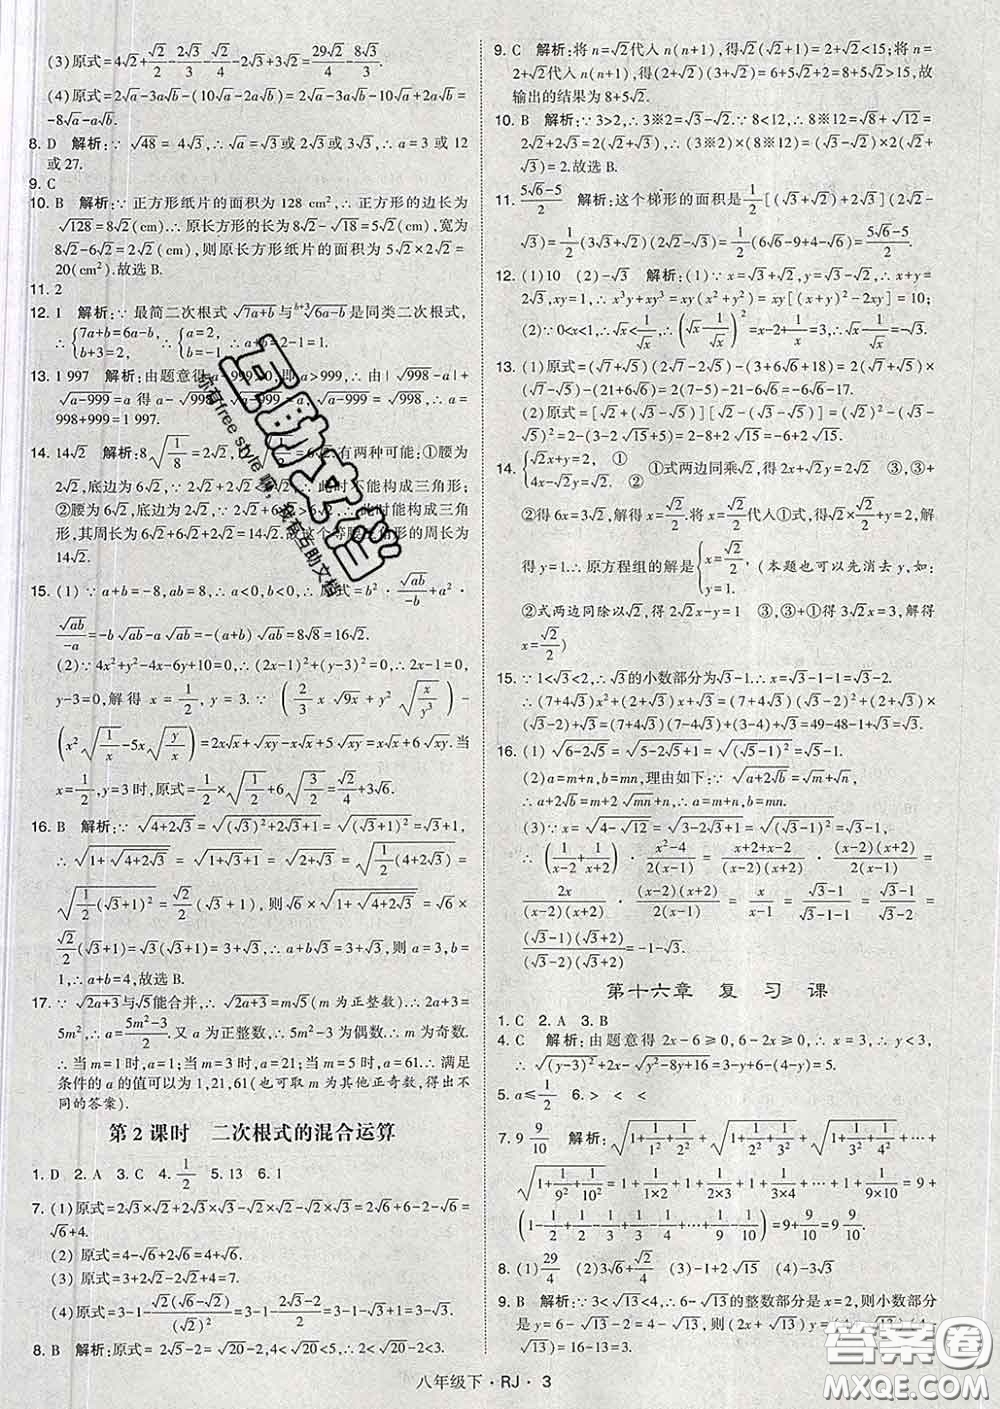 (3)原式=4√2+√2/4-2√3/3-2√3=29√2/4-8√3/3.
(4)原式=2√a-3a√b-(10√a-2a√b)=2√a-3a√b-10√a+2a√b=
-8√a-a√b.
8. D 解析:∵√48=4√3,∴√48-√3=4√3-√3=3√3,∴a=3或12
或27.
9. C
10. B 解析:∵正方形纸片的面积为128 cm²,∴正方形的边长为
√128=8√2(cm).∴原长方形的长为8√2-3√2=5√2(cm),宽为
8√2-6√2=2√2(cm),则原长方形纸片的面积为5√2×2√2=
20(cm²).故选B.
11. 2
12. 1 解析:∵最简二次根式√(7a+b)与ᵇ⁺³√(6a-b)是同类二次根式,
∴{7a+b=6a-b, b+3=2,∴{a=2, b=-1,∴a+b=2-1=1.
13. 1 997 解析:由题意得a-999≥0,即a>999,∴由|√998-a|+
√(a-999)=a得a-√998+√(a-999)=a,∴√(a-999)=√998,∴a=
998+999=1 997.
14. 14√2 解析:8√(1/8)=2√2, =6√2.有两种可能:①腰为
2√2,底边为6√2,∵2√2+2√2<6√2,∴此时不能构成三角形;
②腰为6√2,底边为2√2,∵2√2+6√2>6√2,∴此时能构成三角
形,其周长为6√2+6√2+2√2=14√2.故这个等腰三角形的周长为
14√2.
15. (1)∵a+b=-8,ab=8,∴a<0,b<0,∴原式=b²·√ab/-b+a²·
√ab/-a=-b√ab-a√ab=-(a+b)√ab=8√8=16√2.
(2)∵4x²+y²-4x-6y+10=0,∴(2x-1)²+(y-3)²=0,∴2x-1=0,
y-3=0,解得x=1/2,y=3.∵(2/3 x√9x+y²√(x/y³))-
(x²√(1/x)-5x√(y/x))=2x√x+√xy-x√x+5√xy=x√x+6√xy.当
x=1/2,y=3时,原式=1/2×√(1/2)+6√(3/2)=√2/4+3√6.
16. B 解析:∵√(4+2√3)=√((√3)²+2√3+1)=√((√3+1)²)=√3+1,
∴√(1+√(4+2√3))=√(1+√3+1)=√(2+√3)=√(1/2(4+2√3))=
√(1/2(√3+1)²)=√2/2(√3+1),则√6×√(1+√(4+2√3))=√6×
√2/2(√3+1)=√3(√3+1)=3+√3.∴a+b√3=3+√3,则a=3,b=
1,∴a+b=4,故选B.
17. ∵√(2a+3)与√5能合并,∴√(2a+3)=m√5(m为正整数),∴2a+3=
5m²,∴a=(5m²-3)/2.又a为正整数,∴5m²-3为偶数,∴m为奇数.
∴当m=1时,a=1;当m=3时,a=21;当m=5时,a=61,∴满足
条件的a的值可以为1,21,61(也可以取m为其他正奇数,得出不
同的答案).
第2课时 二次根式的混合运算
1. D 2. A 3. C 4. 1/2 5. 13 6. 1
7. (1)原式=2√3×√2+2√3×√3-2√2×√2=2√6+6-2×2=2√6
+4.
(2) 原式=4-√6+2√6=4+√6.
(3) 原式=3+2√2-2√2+4=7.
(4)原式=3-1-√2(√6-√2)/(√2)²=3-1-(2√3-2)/2=3-√3.
8. B 解析:原式=2√5-2=√20-2,∵4<√20<5,∴2<√20-2<3,故选B.
9. C 解析:将n=√2代入n(n+1),得√2(√2+1)=2+√2<15;将n=
2+√2代入n(n+1),得(2+√2)(3+√2)=6+5√2+2=8+5√2>15,故
输出的结果为8+5√2.
10. B 解析:∵3>2,∴3※2=√3-√2.∵8<12,∴8※12=√8+√12=
2(√2+√3),∴(3※2)×(8※12)=(√3-√2)×2(√2+√3)=2.故选B.
11. (5√6-5)/2 解析:这个梯形的面积是1/2[(√3+√2)+2√3](2√2-
√3)=1/2(3√3+√2)(2√2-√3)=1/2(6√6-9+4-√6)=(5√6-5)/2.
12. (1)10 (2)-√3 解析:(1)∵x=√3+√2,y=√3-√2,∴x+y=
2√3,xy=1,∴x³y+xy³=xy(x²+y²)=xy[(x+y)²-2xy]=10;
(2)∵0<x<1,∴√x<1/√x,∴(√x-1/√x)²=x+1/x-2=3,∴√x-1/√x=-√3.
13. (1)原式=(√7+√6)(√7-√6)-(√7+√6)²=(√7)²-(√6)²
-(7+2√42+6)=7-6-13-2√42
(2)原式=[√2+(√3-√5)][√2-(√3-√5)]=(√2)²-(√3-√5)²=2-(3-2√15+5)=2√15-6.
14. {√2x+y=2, ① 4x-√2y=√2, ② ①式两边同乘√2,得2x+√2y=2√2,③ ③+
②得6x=3√2,解得x=√2/2.将x=√2/2代入①式,得√2×√2/2+y=2,解
得y=1.∴原方程组的解是{x=√2/2, y=1.(本题也可以先消去y,由
②式两边同除以√2,得2√2x-y=1 ③,①+③得3√2x=3,解得
x=√2/2)
15. ∵1<√3<2,∴√3的小数部分为√3-1.∴x=√3-1.
∴(7+4√3)x²+(2+√3)x+√3=(7+4√3)(√3-2)²+(2+√3)×
(√3-2)+√3=(7+4√3)(7-4√3)+(3-4)+√3=49-48-1+√3=√3.
16. (1)√(6-2√5)=√(5-2√5+1)=√((√5-1)²)=√5-1.
(2)a=m+n,b=mn,理由如下:∵√(a+2√b)=√m+√n,
∴a+2√b=m+2√mn+n,∴a=m+n,b=mn.
(3)∵x=√(4-√12)=√(3-2√3+1)=√((√3-1)²)=√3-1,
∴(1/(x-2)+1/(x+2))·(x²-4)/(2(x-1))=(x+2+x-2)/((x-2)(x+2))·(x-2)(x+2)/(2(x-1))=
2x/((x-2)(x+2))·(x-2)(x+2)/(2(x-1))=x/(x-1)=(√3-1)/(√3-1-1)=(√3-1)/(√3-2)=
(√3-1)(√3+2)/((√3-2)(√3+2))=-1-√3.
第十六章 复习课
1. C 2. A 3. B
4. C 解析:由题意得2x-6≥0,6-2x≥0,∴x=3,∴y<3,
∴√((y-3)²)+√(y²-8y+16)=3-y+4-y=7-2y.
5. a≤1/2 6. > < <
7. 9 9/10 解析:√(1+1/1²+1/2²)+√(1+1/2²+1/3²)+√(1+1/3²+1/4²)+…+
√(1+1/9²+1/10²)=1+1/(1×2)+1+1/(2×3)+1+1/(3×4)+…+1+1/(9×10)=9+
(1-1/2+1/2-1/3+1/3-1/4+…+1/9-1/10)=9+9/10=9 9/10.
8. (1)29/4 (2)3√6+√2/4 (3)-1+2√15 (4)-1-√2
9. B 解析:∵3<√13<4,∴6-√13的整数部分是x=2,则小数部
分是y=6-√13-2=4-√13,则(2x+√13)y=(4+√13)(4-
√13)=16-13=3.
八年级下·RJ·3
互助文档
你有free style嘛,我有互助文档
答案圈
MXQE.COM